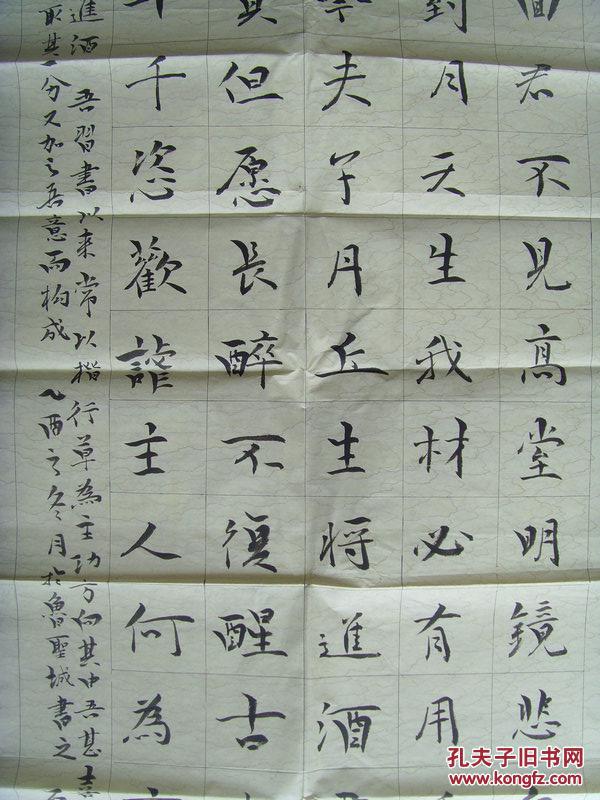 君不見高堂明鏡悲
月天生我材必有用
夫子丹丘生將進酒
但愿長醉不復醒古
千恣歡謔主人何為
進酒 吾習書以来常以楷行草為主功方向其中吾甚喜
取其一分又加之吾意而构成 乙酉之冬月於魯聖城書之
孔夫子旧书网
www.kongfz.com